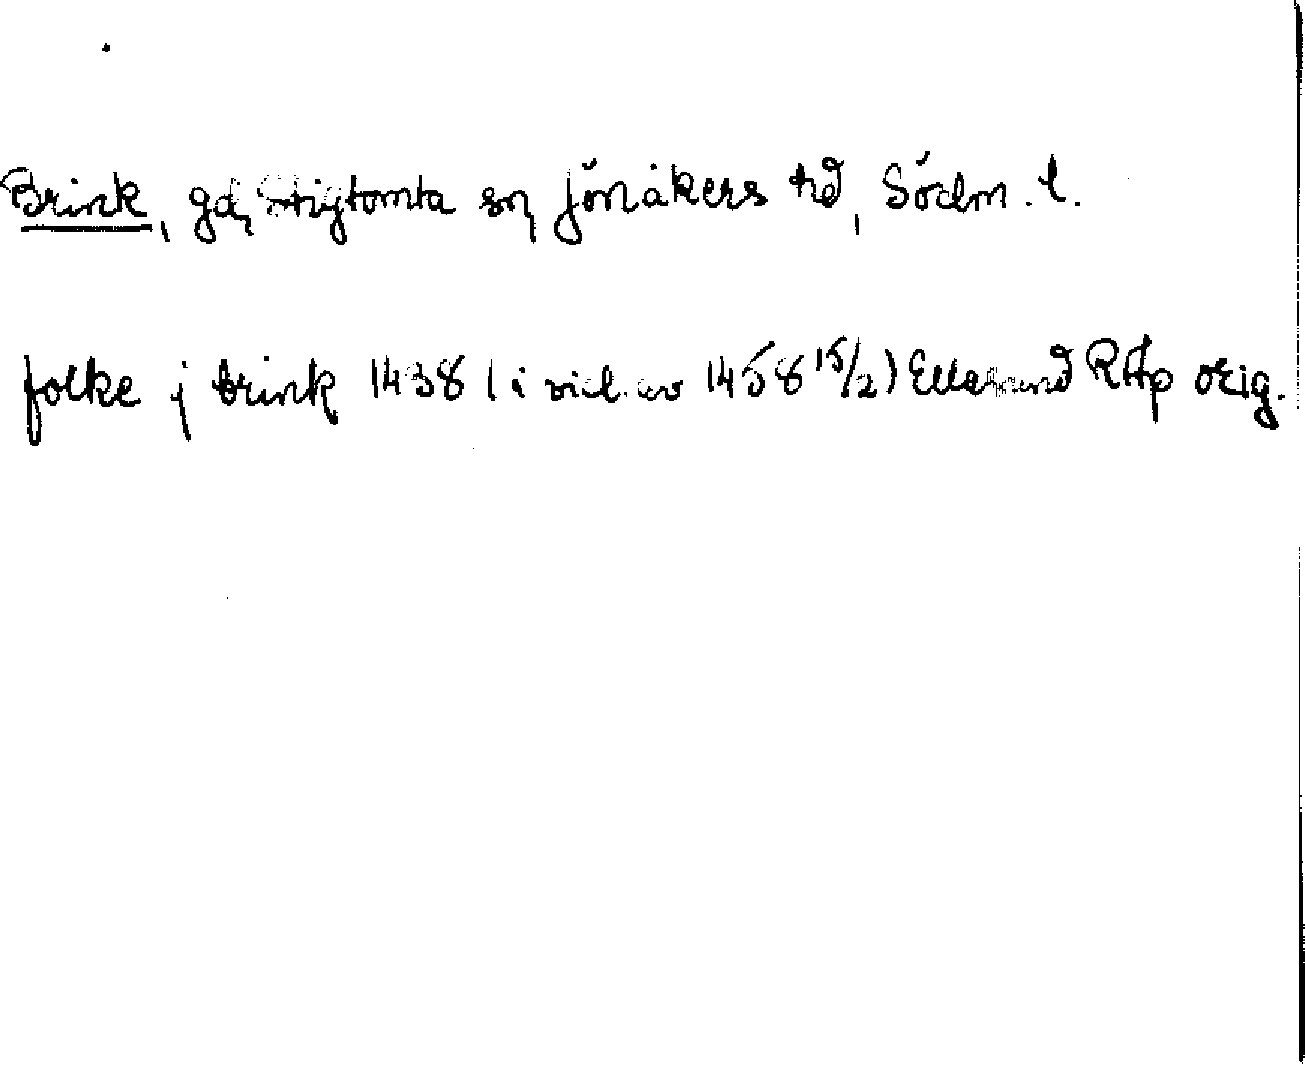 Brink, gd, Stigtomta sn, Jönåkers hd, Södm. l.
folke j brink 1438 (i vid. av 1458 15/2) RAp orig.